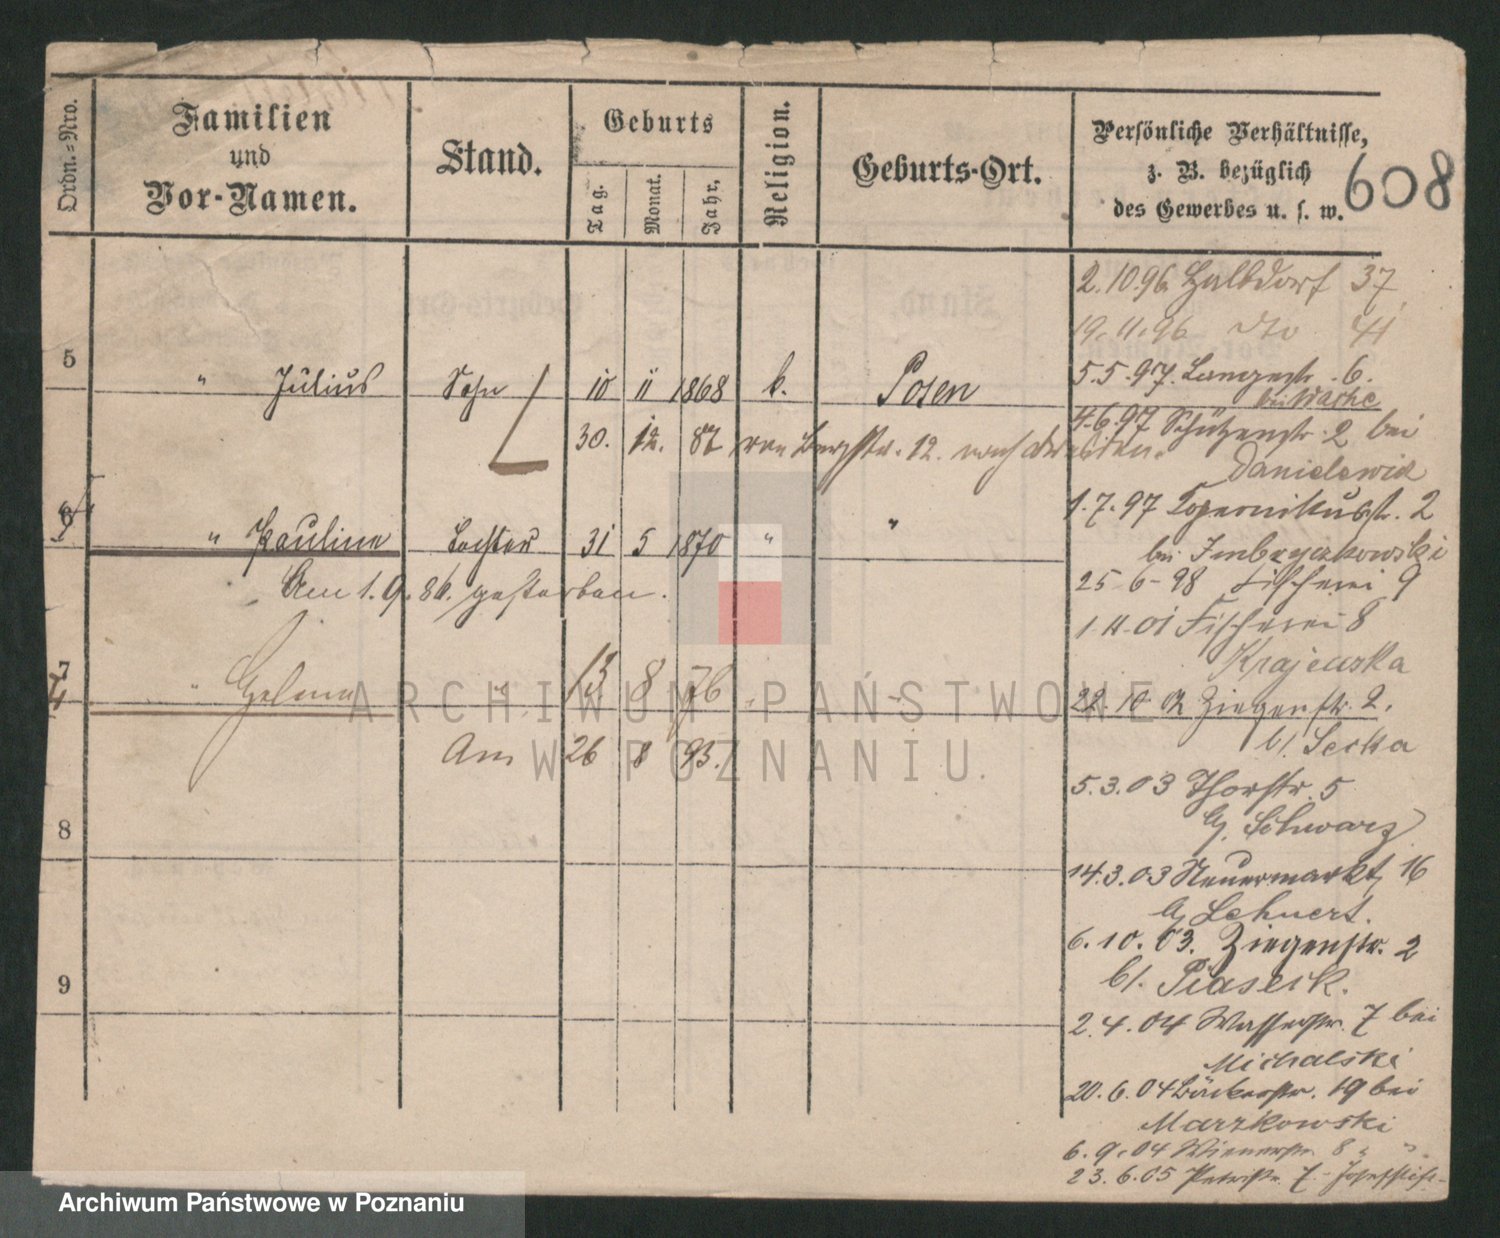 Ordn.=Nro.
Familien
und
Vor-Namen.
Stand.
Geburts
Tag.
Monat.
Jahr,
Religion.
Geburts-Ort.
Persönliche Verhältnisse,
z. B. bezüglich
des Gewerbes u. s. w.
608
2.10.96 Halbdorf 37
19.11.96 dto 41
5 " Julius Sohn 10 11 1868 k. Posen
5.5.97. Langestr. 6.
bei Wache
30. 12. 87 von Bergstr. 12. nach
4.6.97 Schützenstr. 2 bei
Danielewicz
1.7.97 Kopernikusstr. 2
6 " Pauline Tochter 31 5 1870 " "
bei
Am 1.9.86. gestorben.
25-6-98 Fischerei 9
1.4.01 Fischerei 8
Krajewska
7 " 13 8 76
28.10.02 Ziegenstr. 2.
bl. Secka
Am 26 8 93.
5.3.03 Thorstr. 5
bj. Schwarz
8
14.3.03 Neuermarkt 16
bj Lehnert.
6.10.03. Ziegenstr. 2
9
bl. Piaseck.
2.4.04 Wasserstr. 7 bei
Michalski
20.6.04 Bäckerstr. 19 bei
Marzkowski
6.9.04 Wienerstr. 8 " "
23.6.05 Petristr. 7
ARCHIWUM PAŃSTWOWE
W POZNANIU
Archiwum Państwowe w Poznaniu